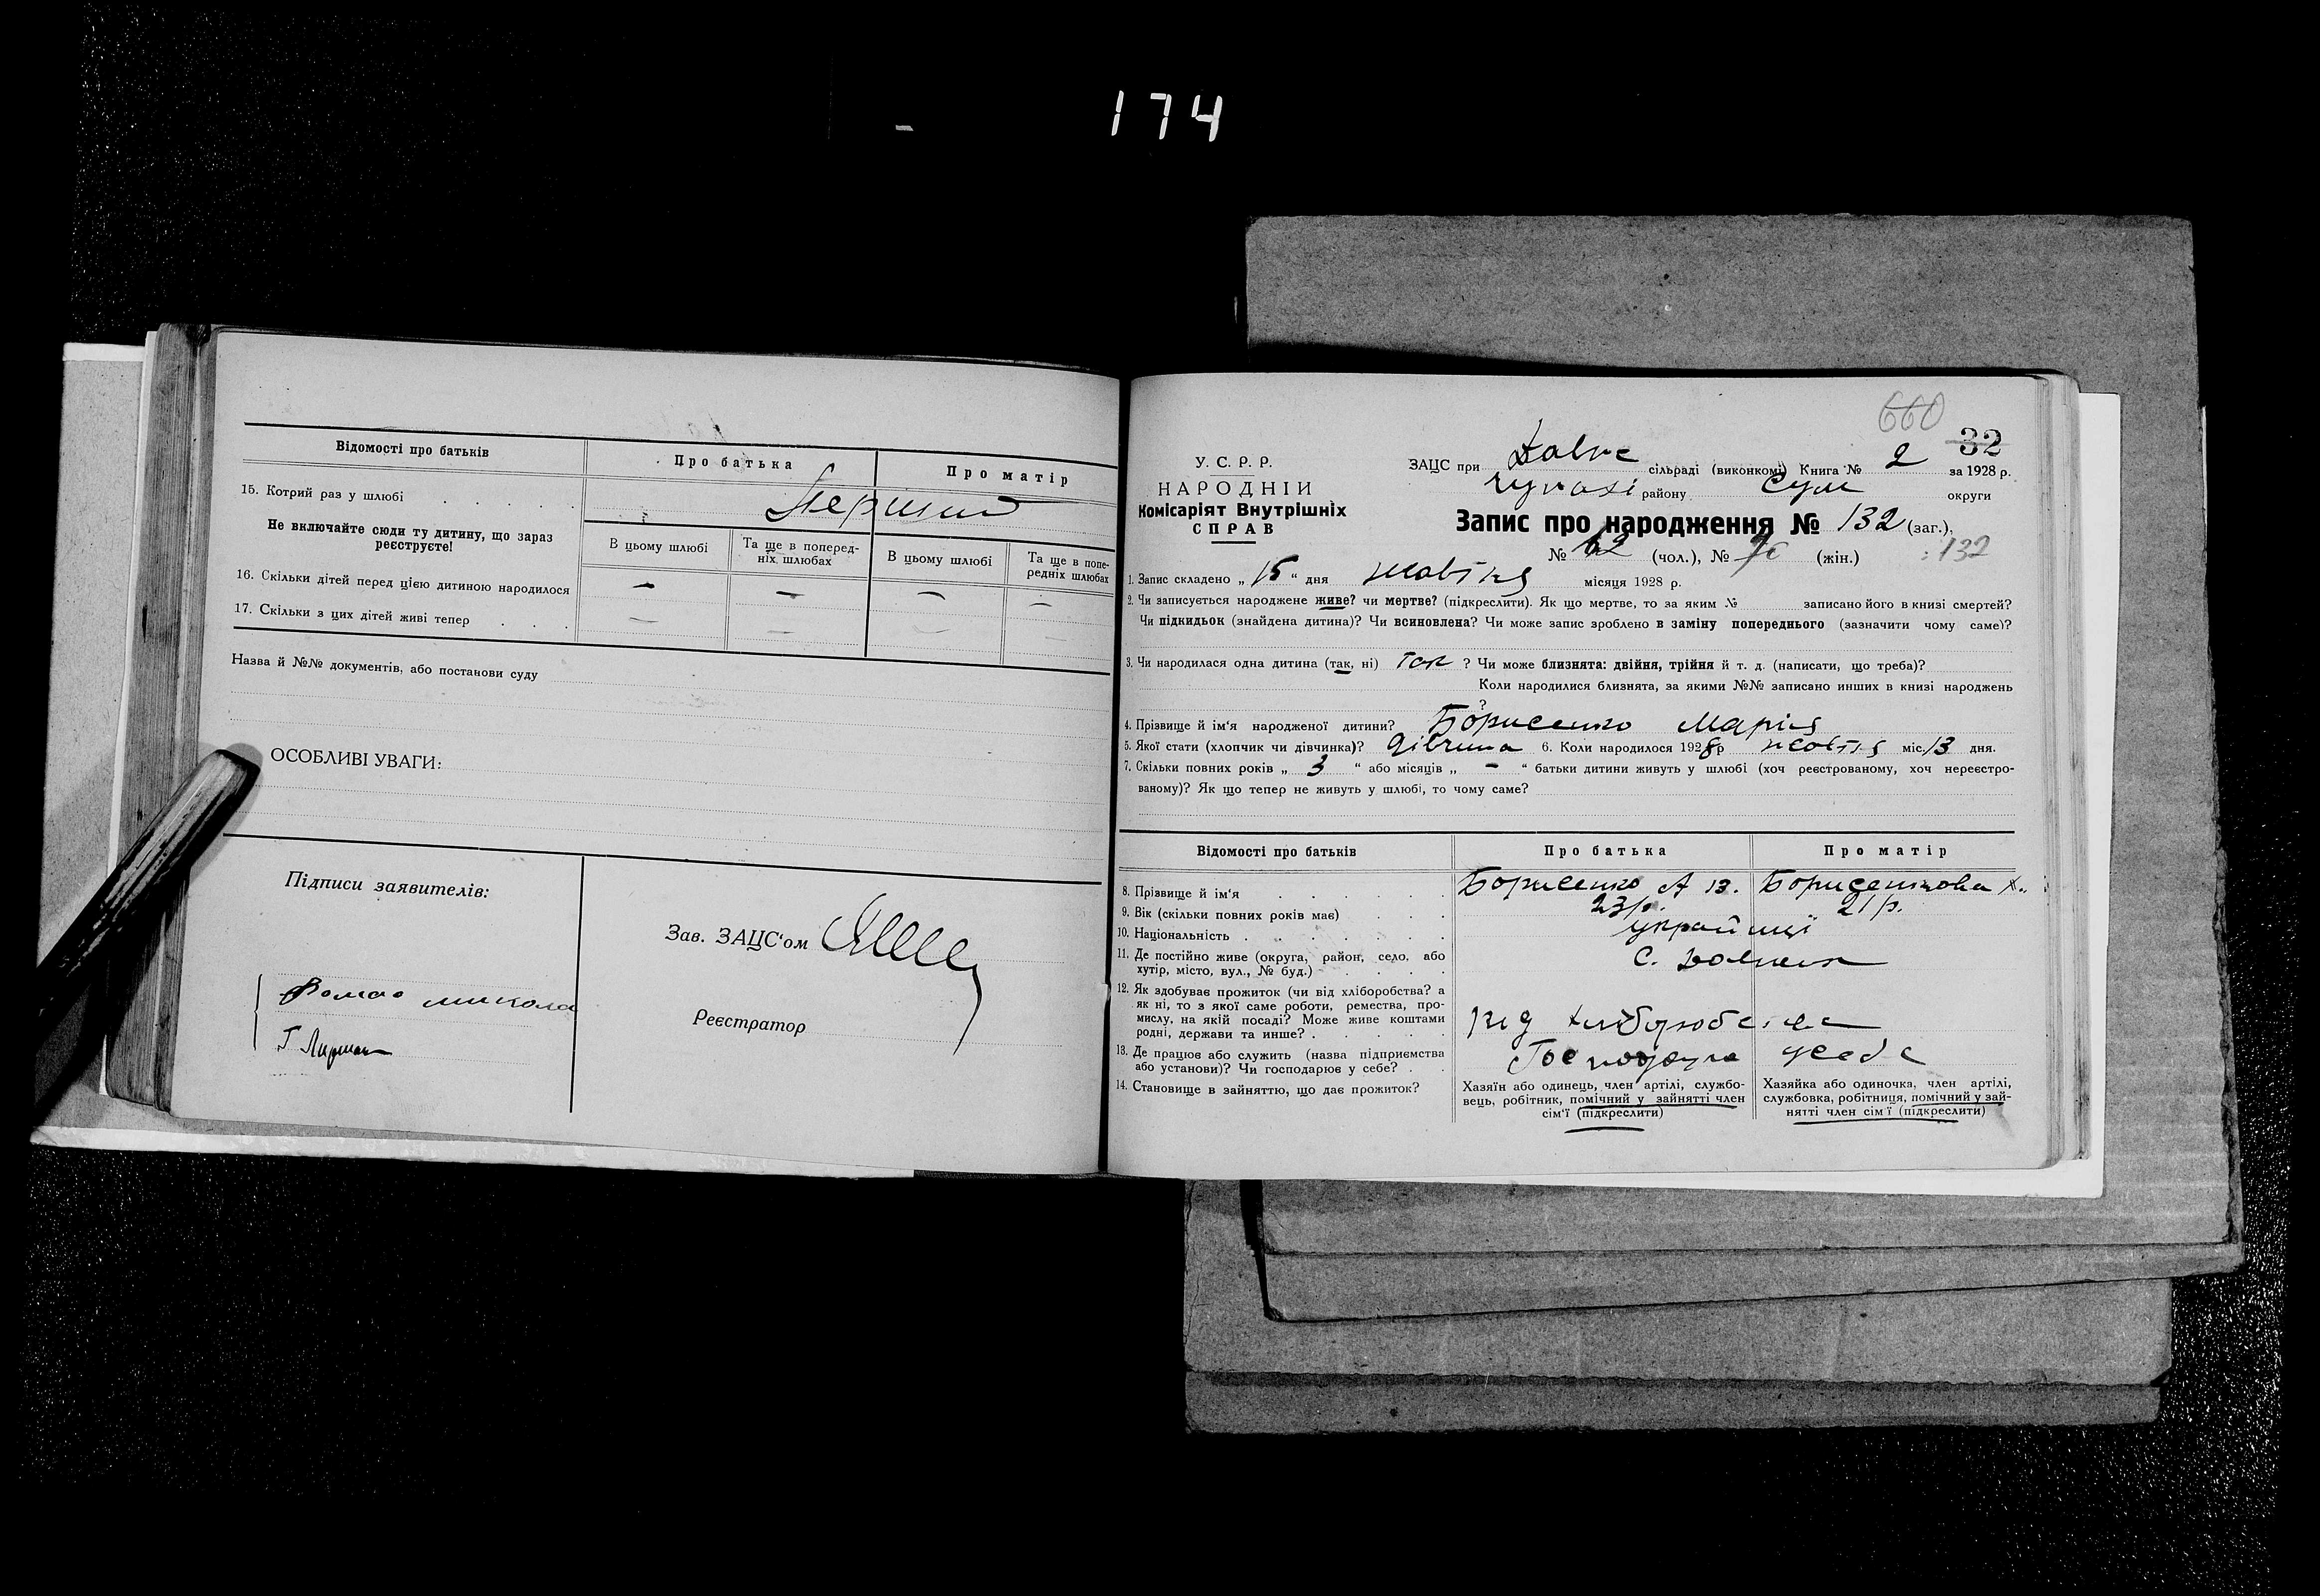 174
Відомості про батьків
Про батька
Про матір
15. Котрий раз у шлюбі
Перший
Не включайте сюди ту дитину, що зараз реєструєте!
В цьому шлюбі
Та ще в попередніх шлюбах
В цьому шлюбі
Та ще в попередніх шлюбах
16. Скільки дітей перед цією дитиною народилося — — — —
17. Скільки з цих дітей живі тепер — — — —
Назва й №№ документів, або постанови суду
ОСОБЛИВІ УВАГИ:
Підписи заявителів:
микола
Зав. ЗАЦС'ом
Реєстратор
660
32
У. С. Р. Р.
НАРОДНІЙ
Комісаріят Внутрішніх
СПРАВ
ЗАЦС при сільраді (виконкомі) Книга № 2 за 1928 р.
району Сум округи
Запис про народження № 132 (заг.),
№ 62 (чол.), № 70 (жін.) 132
1. Запис складено „ 15 “ дня жовтня місяця 1928 р.
2. Чи записується народжене живе? чи мертве? (підкреслити). Як що мертве, то за яким № записано його в книзі смертей?
Чи підкидьок (знайдена дитина)? Чи всиновлена? Чи може запис зроблено в заміну попереднього (зазначити чому саме)?
3. Чи народилася одна дитина (так, ні) так ? Чи може близнята: двійня, трійня й т. д. (написати, що треба)?
Коли народилися близнята, за якими №№ записано инших в книзі народжень
?
4. Прізвище й ім'я народженої дитини? Борисенко Марія
5. Якої стати (хлопчик чи дівчинка)? дівчина 6. Коли народилося 1928 р жовтня міс. 13 дня.
7. Скільки повних років „ 3 “ або місяців „ - “ батьки дитини живуть у шлюбі (хоч реєстрованому, хоч нереєстро-
ваному)? Як що тепер не живуть у шлюбі, то чому саме?
Відомості про батьків
Про батька
Про матір
8. Прізвище й ім'я
Борисенко А
Борисенкова Х.
9. Вік (скільки повних років має)
23 р.
21 р.
10. Національність
українці
11. Де постійно живе (округа, район, село, або
хутір, місто, вул., № буд.)
с.
12. Як здобуває прожиток (чи від хліборобства? а
як ні, то з якої саме роботи, ремества, про-
мислу, на якій посаді? Може живе коштами
родні, держави та инше?
від хліборобства
13. Де працює або служить (назва підприємства
або установи)? Чи господарює у себе?
Господарює у себе
14. Становище в зайняттю, що дає прожиток?
Хазяїн або одинець, член артілі, службо-
вець, робітник, помічний у зайнятті член
сім'ї (підкреслити)
Хазяйка або одиночка, член артілі,
службовка, робітниця, помічний у зай-
нятті член сім'ї (підкреслити)